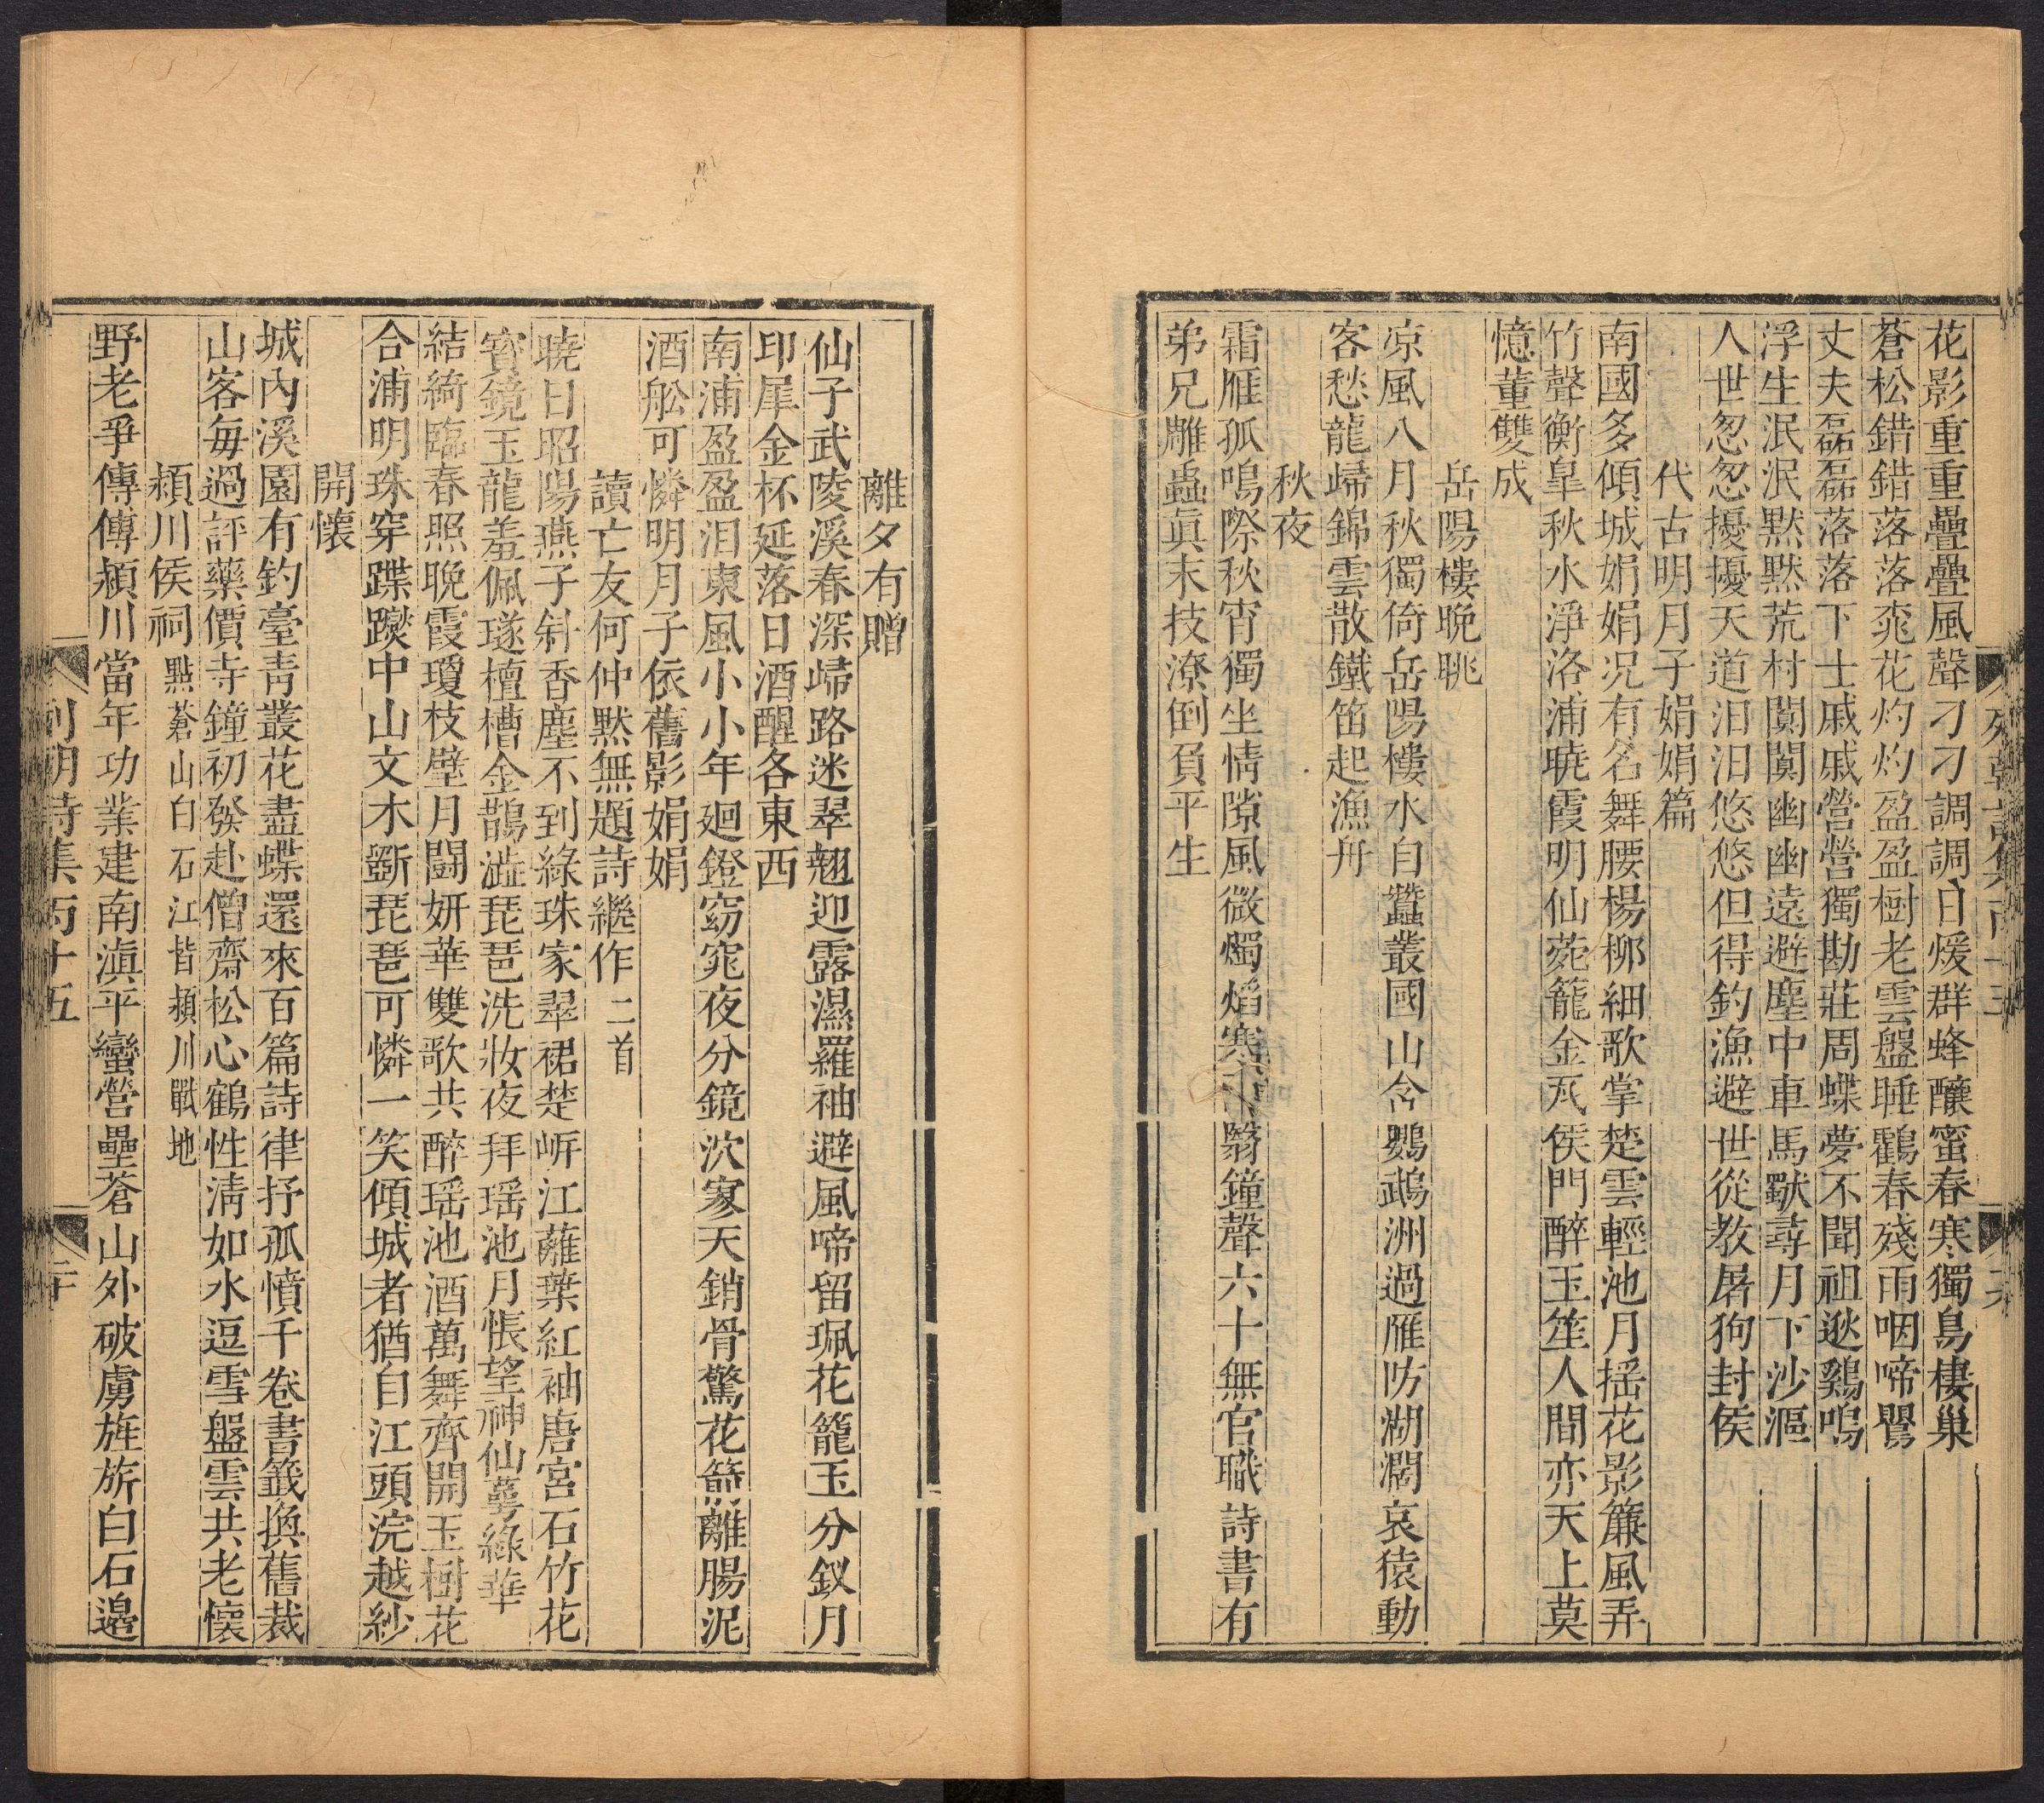 花影重重疊疊風聲刁刁調調日煖群蜂釀蜜春寒獨鳥棲巢
蒼松錯錯落落桃花灼灼盈盈樹老雲盤睡鸛春殘雨咽啼鸎
丈夫磊磊落落下士戚戚營營獨勘莊周蝶夢不聞祖逖鷄鳴
浮生泯泯默默荒村闃闃幽幽遠避塵中車馬獃尋月下沙漚
人世忽忽擾擾天道汩汩悠悠但得釣漁避世從教屠狗封侯
代古明月子娟娟篇
南國多傾城娟娟况有名舞腰楊柳細歌掌楚雲輕池月揺花影簾風弄
竹聲衡皐秋水淨洛浦曉霞明仙菀籠金瓦侯門醉玉笙人間亦天上莫
憶董雙成
岳陽樓晚眺
凉風八月秋獨倚岳陽樓水自蠶叢國山含鸚鵡洲過雁防湖濶哀猿動
客愁龍歸錦雲散鐵笛起漁舟
秋夜
霜雁孤鳴際秋宵獨坐情隙風微燭焰寒翳鐘聲六十無官職詩書有
弟兄雕蟲眞末技潦倒負平生
離夕有贈
仙子武陵溪春深歸路迷翠翹迎露濕羅袖避風啼留珮花籠玉分釵月
印犀金杯延落日酒醒各東西
南浦盈盈泪東風小小年廻鐙窈窕夜分鏡泬寥天銷骨驚花箭離腸泥
酒舩可憐明月子依舊影娟娟
讀亡友何仲默無題詩繼作二首
曉日昭陽燕子斜香塵不到綠珠家翠裙楚岍江蘺葉紅袖唐宮石竹花
寳鏡玉龍羞佩璲檀槽金鵲澁琵琶洗妝夜拜瑶池月悵望神仙萼綠華
結綺臨春照晚霞瓊枝壁月闘妍華雙歌共醉瑶池酒萬舞齊開玉樹花
合浦明珠穿蹀躞中山文木斵琵琶可憐一笑傾城者猶自江頭浣越紗
開懷
城內溪園有釣臺青叢花盡蝶還來百篇詩律抒孤憤千卷書籤換舊裁
山客毎過評藥價寺鐘初發赴僧齋松心鶴性淸如水逗雪盤雲共老懷
潁川侯祠點蒼山白石江皆潁川戰地
野老爭傳傳潁川當年功業建南滇平蠻營壘蒼山外破虜旌旂白石邊
列朝詩集丙十五
二十